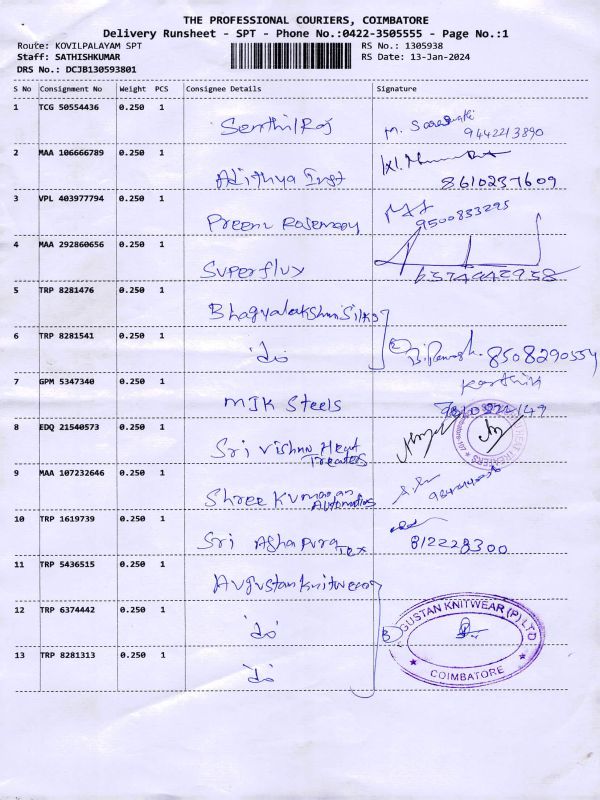 THE PROFESSIONAL COURIERS, COIMBATORE
Delivery Runsheet - SPT - Phone No.:0422-3505555 - Page No.:1
Route: KOVILPALAYAM SPT RS No.: 1305938
Staff: SATHISHKUMAR RS Date: 13-Jan-2024
DRS No.: DCJB130593801
S No Consignment No Weight PCS Consignee Details Signature
1 TCG 50554436 0.250 1 Senthil Raj
9442213890
2 MAA 106666789 0.250 1 Adithya Inst
8610237609
3 VPL 403977794 0.250 1 Preem Rosemary
9500833295
4 MAA 292860656 0.250 1 Superflux
5 TRP 8281476 0.250 1 Bhagyalakshmi Silks
6 TRP 8281541 0.250 1 do 2 8508290554
Karthik
7 GPM 5347340 0.250 1 MJK Steels
8 EDQ 21540573 0.250 1 Sri Vishnu Heat
Treaters
9 MAA 107232646 0.250 1 Shree Kumaran
Automotives
10 TRP 1619739 0.250 1 Sri Ashapura Tex 812228300
11 TRP 5436515 0.250 1 Augustan Knitwear
12 TRP 6374442 0.250 1 do 3 GUSTAN KNITWEAR (P) LTD
COIMBATORE
13 TRP 8281313 0.250 1 do